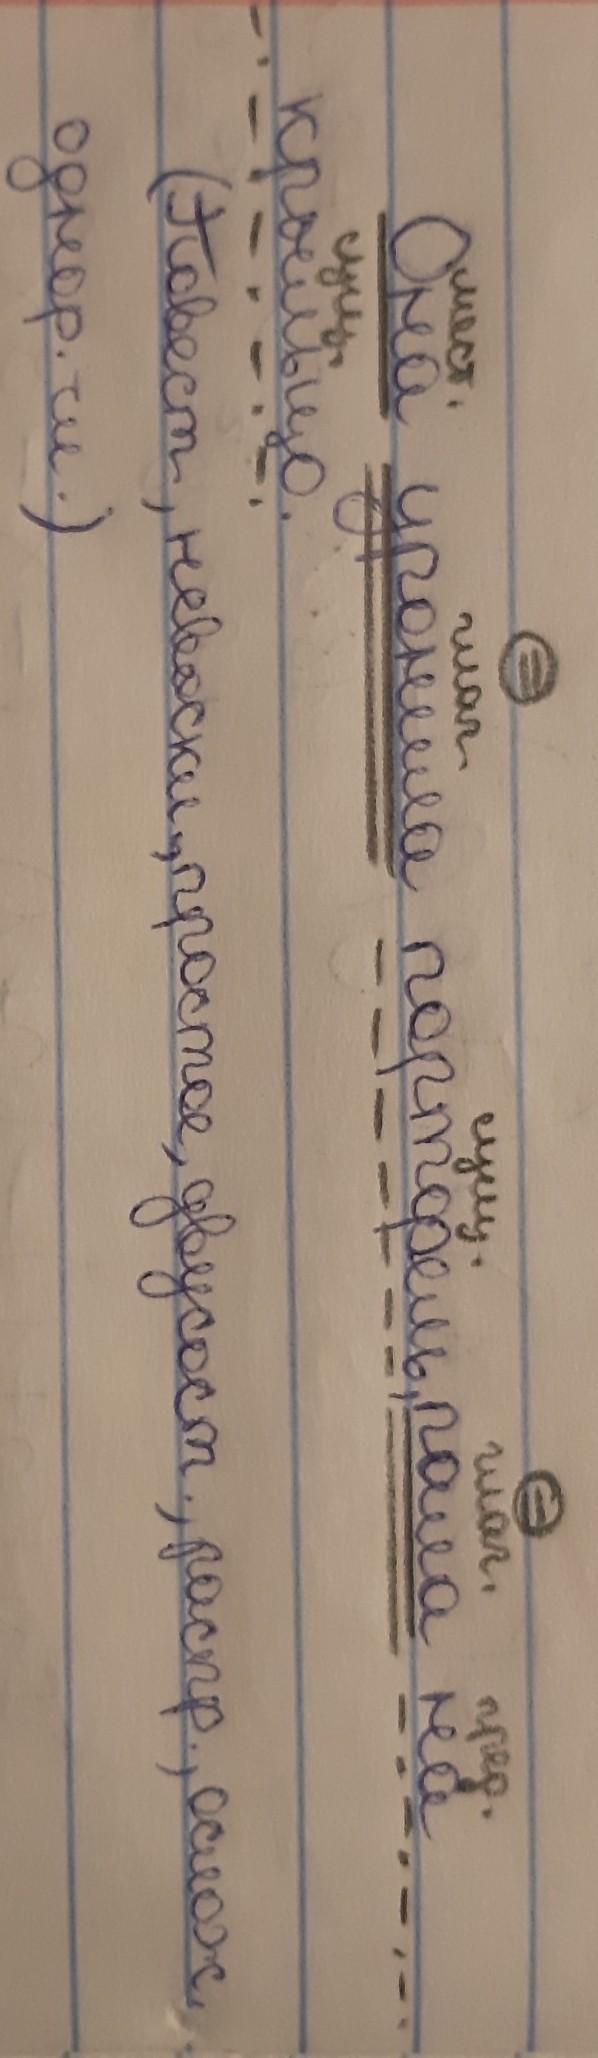 мест. глаг. сущ. глаг. пред.
Она уронила портфель, пала на
сущ.
крыльцо.
(Повест., невоскл., простое, двусост., распр., ослож.
однор. чл.)